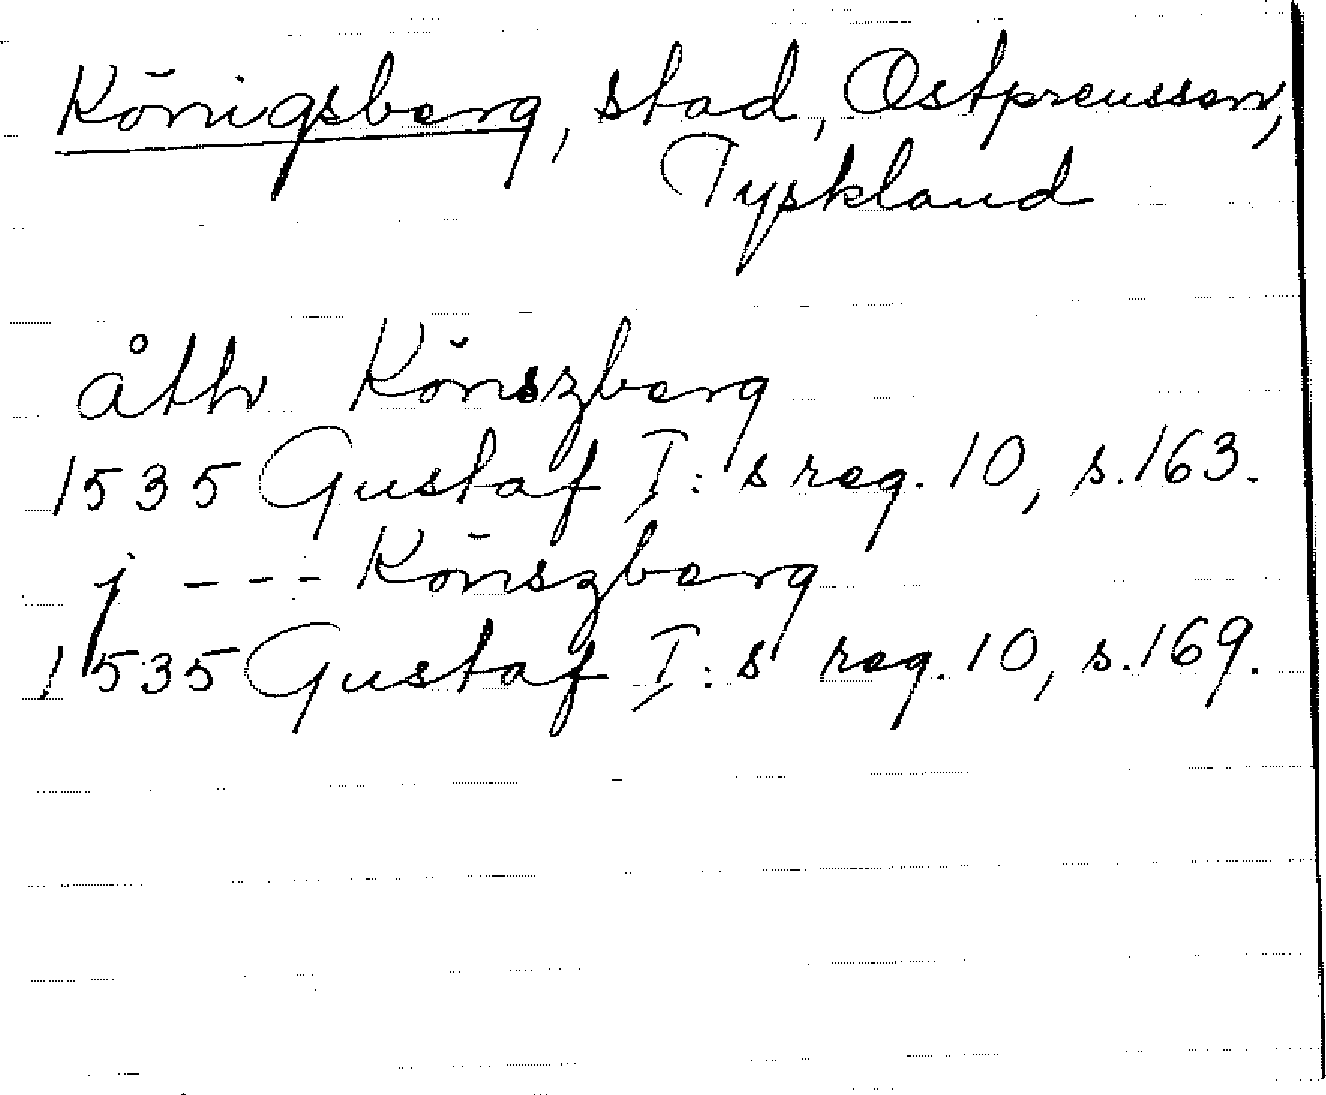 Königsberg, stad, Ostpreussen,
Tyskland
åth Könszberg
1535 Gustaf I:s reg. 10, s. 163.
j --- Könszberg
1535 Gustaf I:s reg. 10, s. 169.